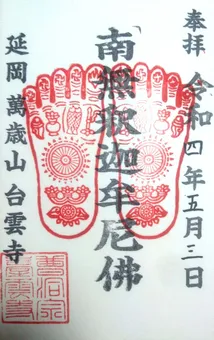 奉拝 令和四年五月三日
南無釈迦牟尼佛
延岡萬歳山台雲寺